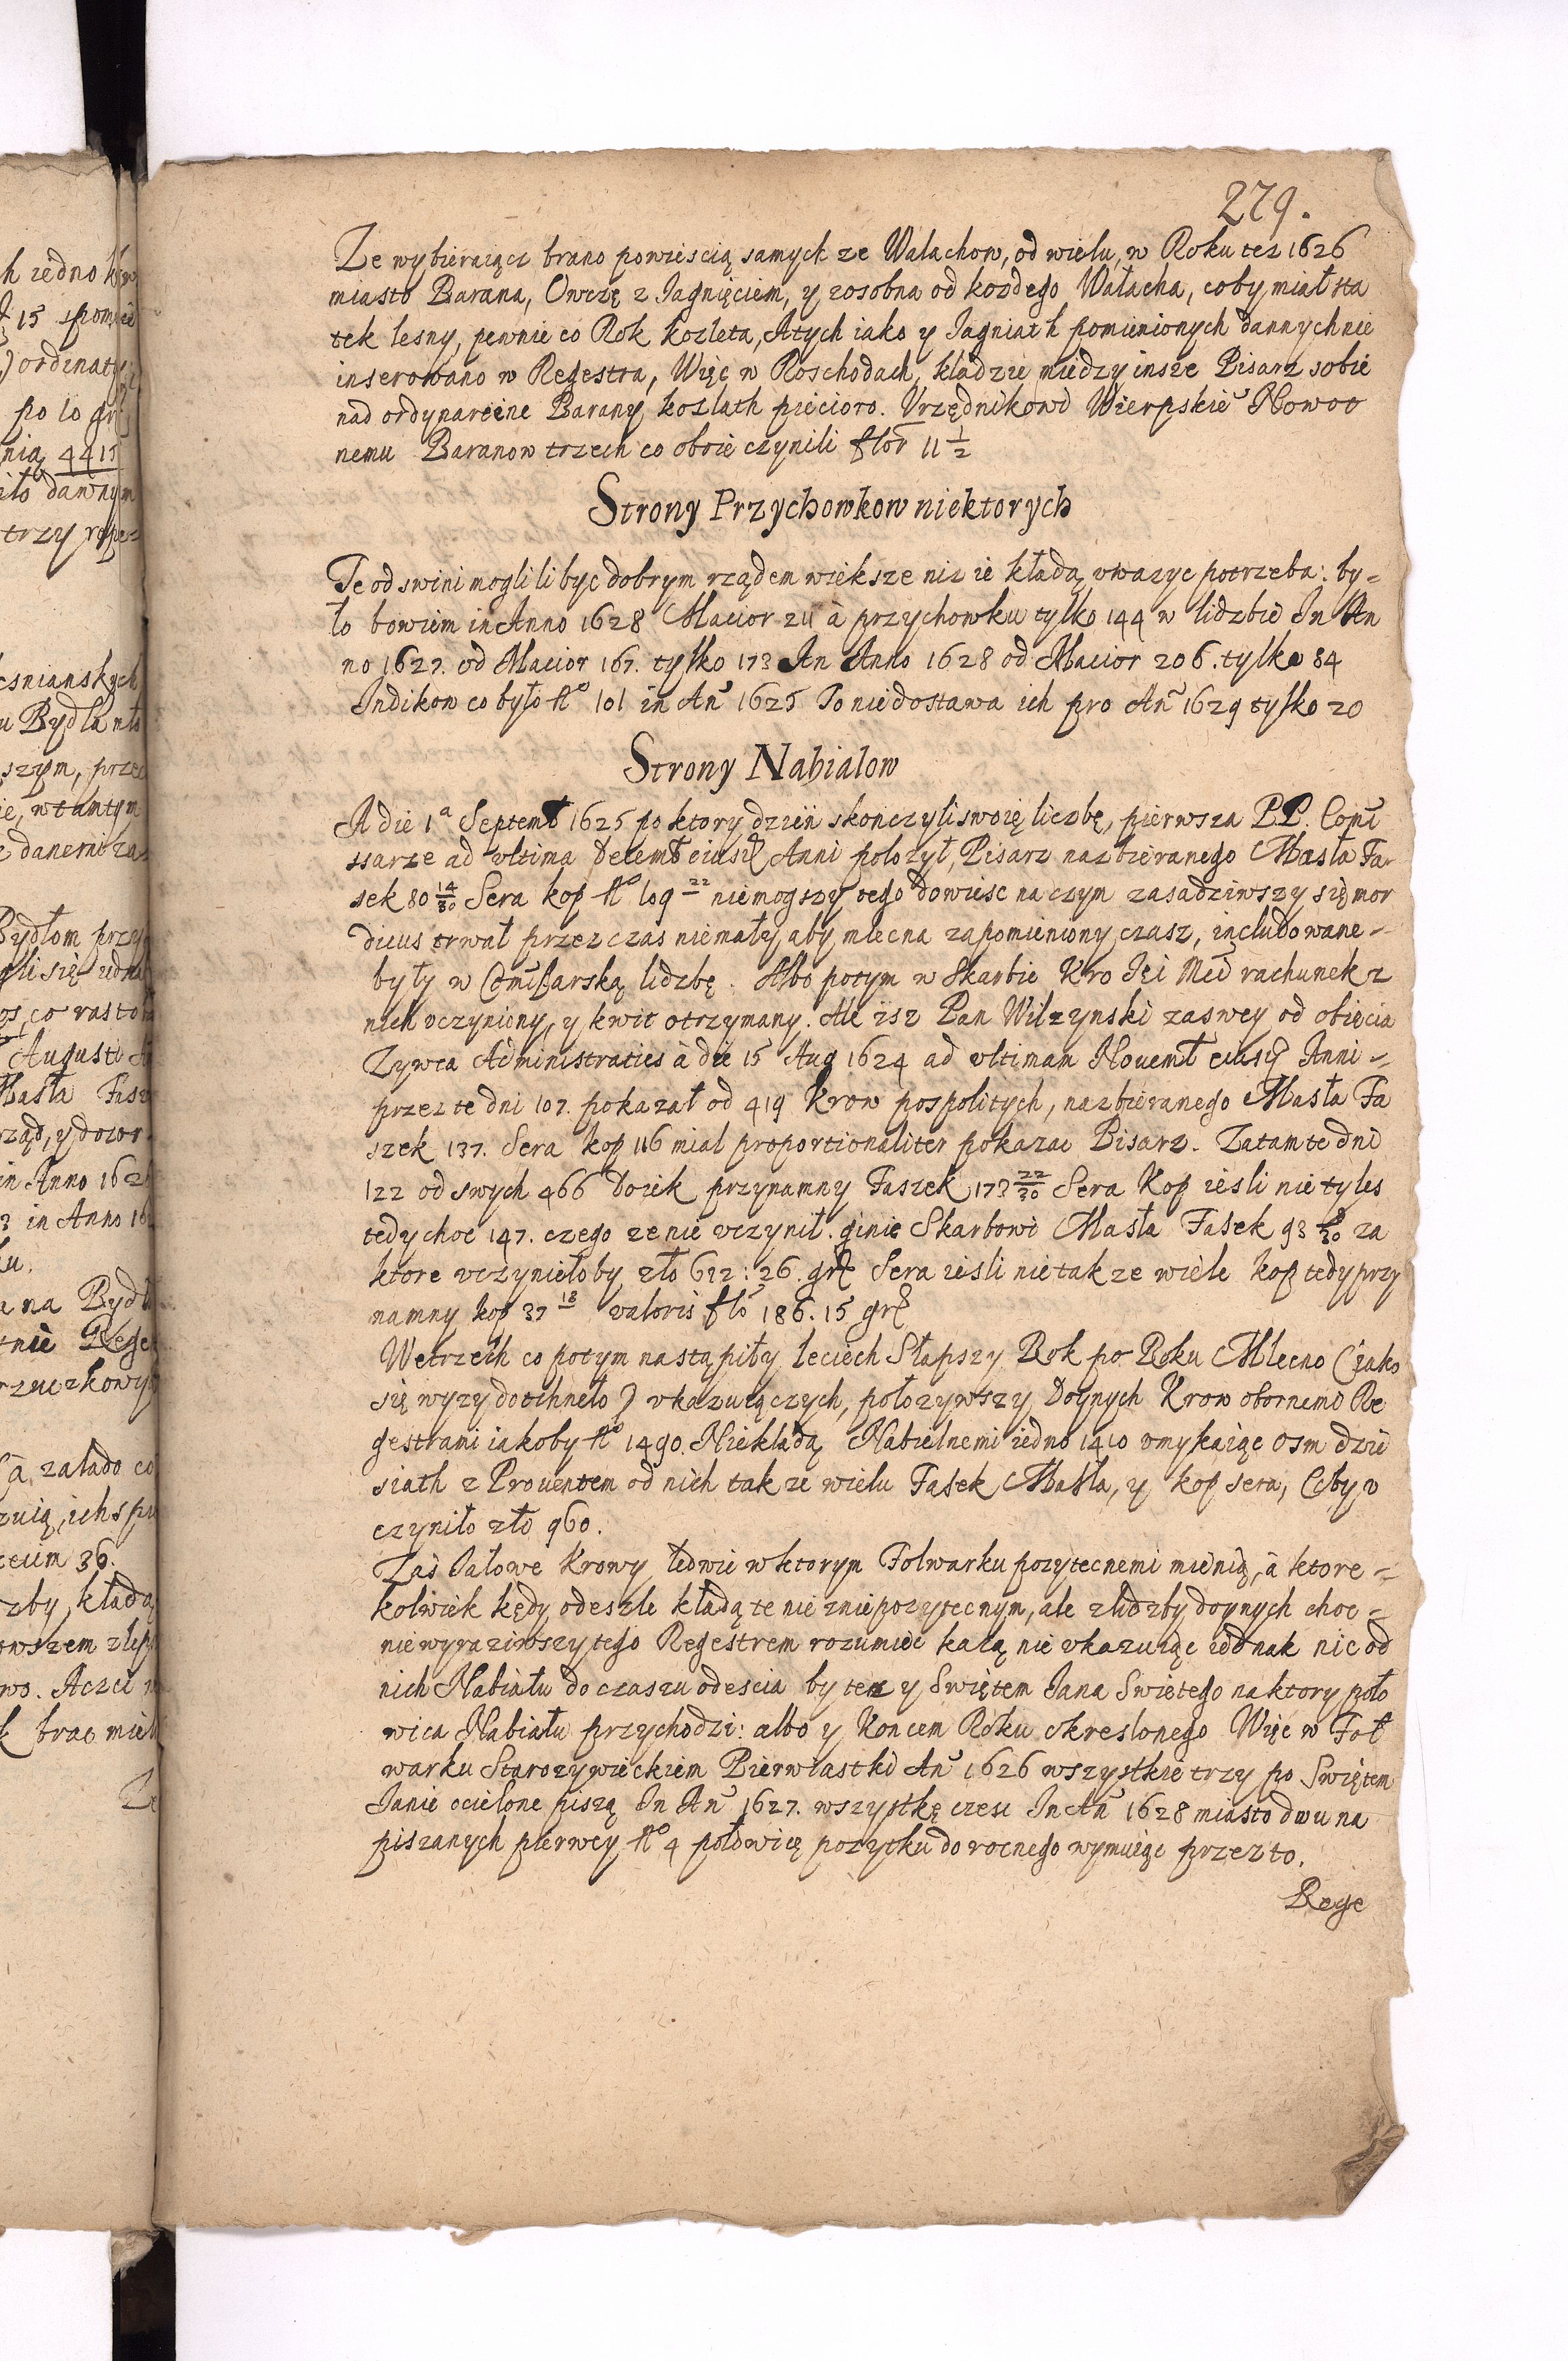 279.
Ze wybieraiącz brano powieścią samych ze Walachow, od wielu, w Roku tez 1626
miasto Barana, Owczę z Iagnięciem, y zosobna od kozdego Wałacha, coby miał sta
tek lesny, pewnie co Rok kozleta, Atych iako y Iagniath pomienionych dannych nie
inserowano w Regestra, Więc w Roschodach, kladzie miedzy insze Pisarz sobie
nad ordynareine Barany kozlath piecioro. Vrzędnikowi Wierpskie Nowot
nemu Baranow trzech co oboie czynili flor 11 1/2
Strony Przychowkow niektorych
Te od swini mogli li byc dobrym rządem wieksze niz ie kładą, vwazyc potrzeba: by=
ło bowiem in Anno 1628 Macior 211 à przychowku tylko 144 w lidzbie In An
no 1627. od Macior 167. tylko 173 An Anno 1628 od Macior 206. tylko 84
Indikow co było No 101 in An 1625 To niedostawa ich pro An 1629 tylko 20
Strony Nabialow
A die 1a Septemb 1625 po ktory dzień skonczyli swoię liczbę, pierwsza P.P. Comi
ssarze ad vltima Decemb eiusd Anni polozył, Pisarz nazbieranego Masła Fa
sek 80 14/30 Sera kop No 109 22 niemogszy tego dowiesc na czym zasadziwszy się mor
dicus trwał przez czas niemały, aby mlecna zapomieniony czasz, includowane=
były w Comißarską lidzbę. Albo potym w Skarbie Kro Iei Mci rachunek z
nich vczyniony, y kwit otrzymany. Ale isz Pan Wilzynski zaswey od obięcia
Zywca Administraties à die 15 Aug 1624 ad vltimam Novemb eiusd Anni=
przez te dni 107. pokazał od 419 Krow pospolitych, nazbieranego Masła Fa
szek 137. Sera kop 116 mial proportionaliter pokazac Pisarz. Zatamte dni
122 od swych 466 doiek przynamny Faszek 173 22/30 Sera Kop iesli nie tyles
tedy choc 147. czego ze nie vczynił. ginie Skarbowi Masła Fasek 93 8/30 za
ktore vczynieło by zło 622: 26. gr Sera iesli nie tak ze wiele kop tedy przy
namny kop 37 18 valoris flo 186. 15 gr
We trzech co potym nastąpiły leciech Słapszy Rok po Roku Mlecno (iako
się wyzy dotchneło) vkazuiączych, położywszy Doynych Krow obornemi Re
gestrami iakoby No 1490. Niekladą Nabielnemi iedno 1410 vmykaiąc osm dzie
siath z Proventem od nich tak ze wielu Fasek Masła, y kop sera, Coby v
czyniło zło 960.
Zaś Iałowe Krowy ledwie w ktorym Folwarku pozytecnemi mienią, à ktore=
kolwiek kędy odeszle kładą te nie z niepozytecnym, ale z lidzby doynych choc=
nie wyraziwszy tego Regestrem rozumiec kazą nie vkazuiąc iednak nic od
nich Nabiału do czaszu odescia by tesz y Swiętem Iana Swietego na ktory poło
wica Nabiału przychodzi: albo y Koncem Roku okreslonego Więc w Fol
warku Starozywieckiem Pierwiastki An 1626 wszystkie trzy po Swiętem
Ianie ocielone piszą In An 1627. wszystkę czesc In An 1628 miasto dwu na
piszanych pierwey No 4 połowicę pozytku do rocnego wymuiąc przez to.
Rege